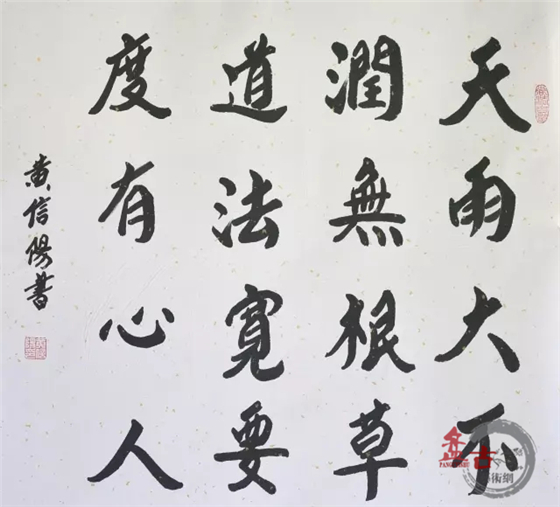 天雨大不
潤無根草
道法寬要
度有心人
黄信陽書
盘古
藝術網